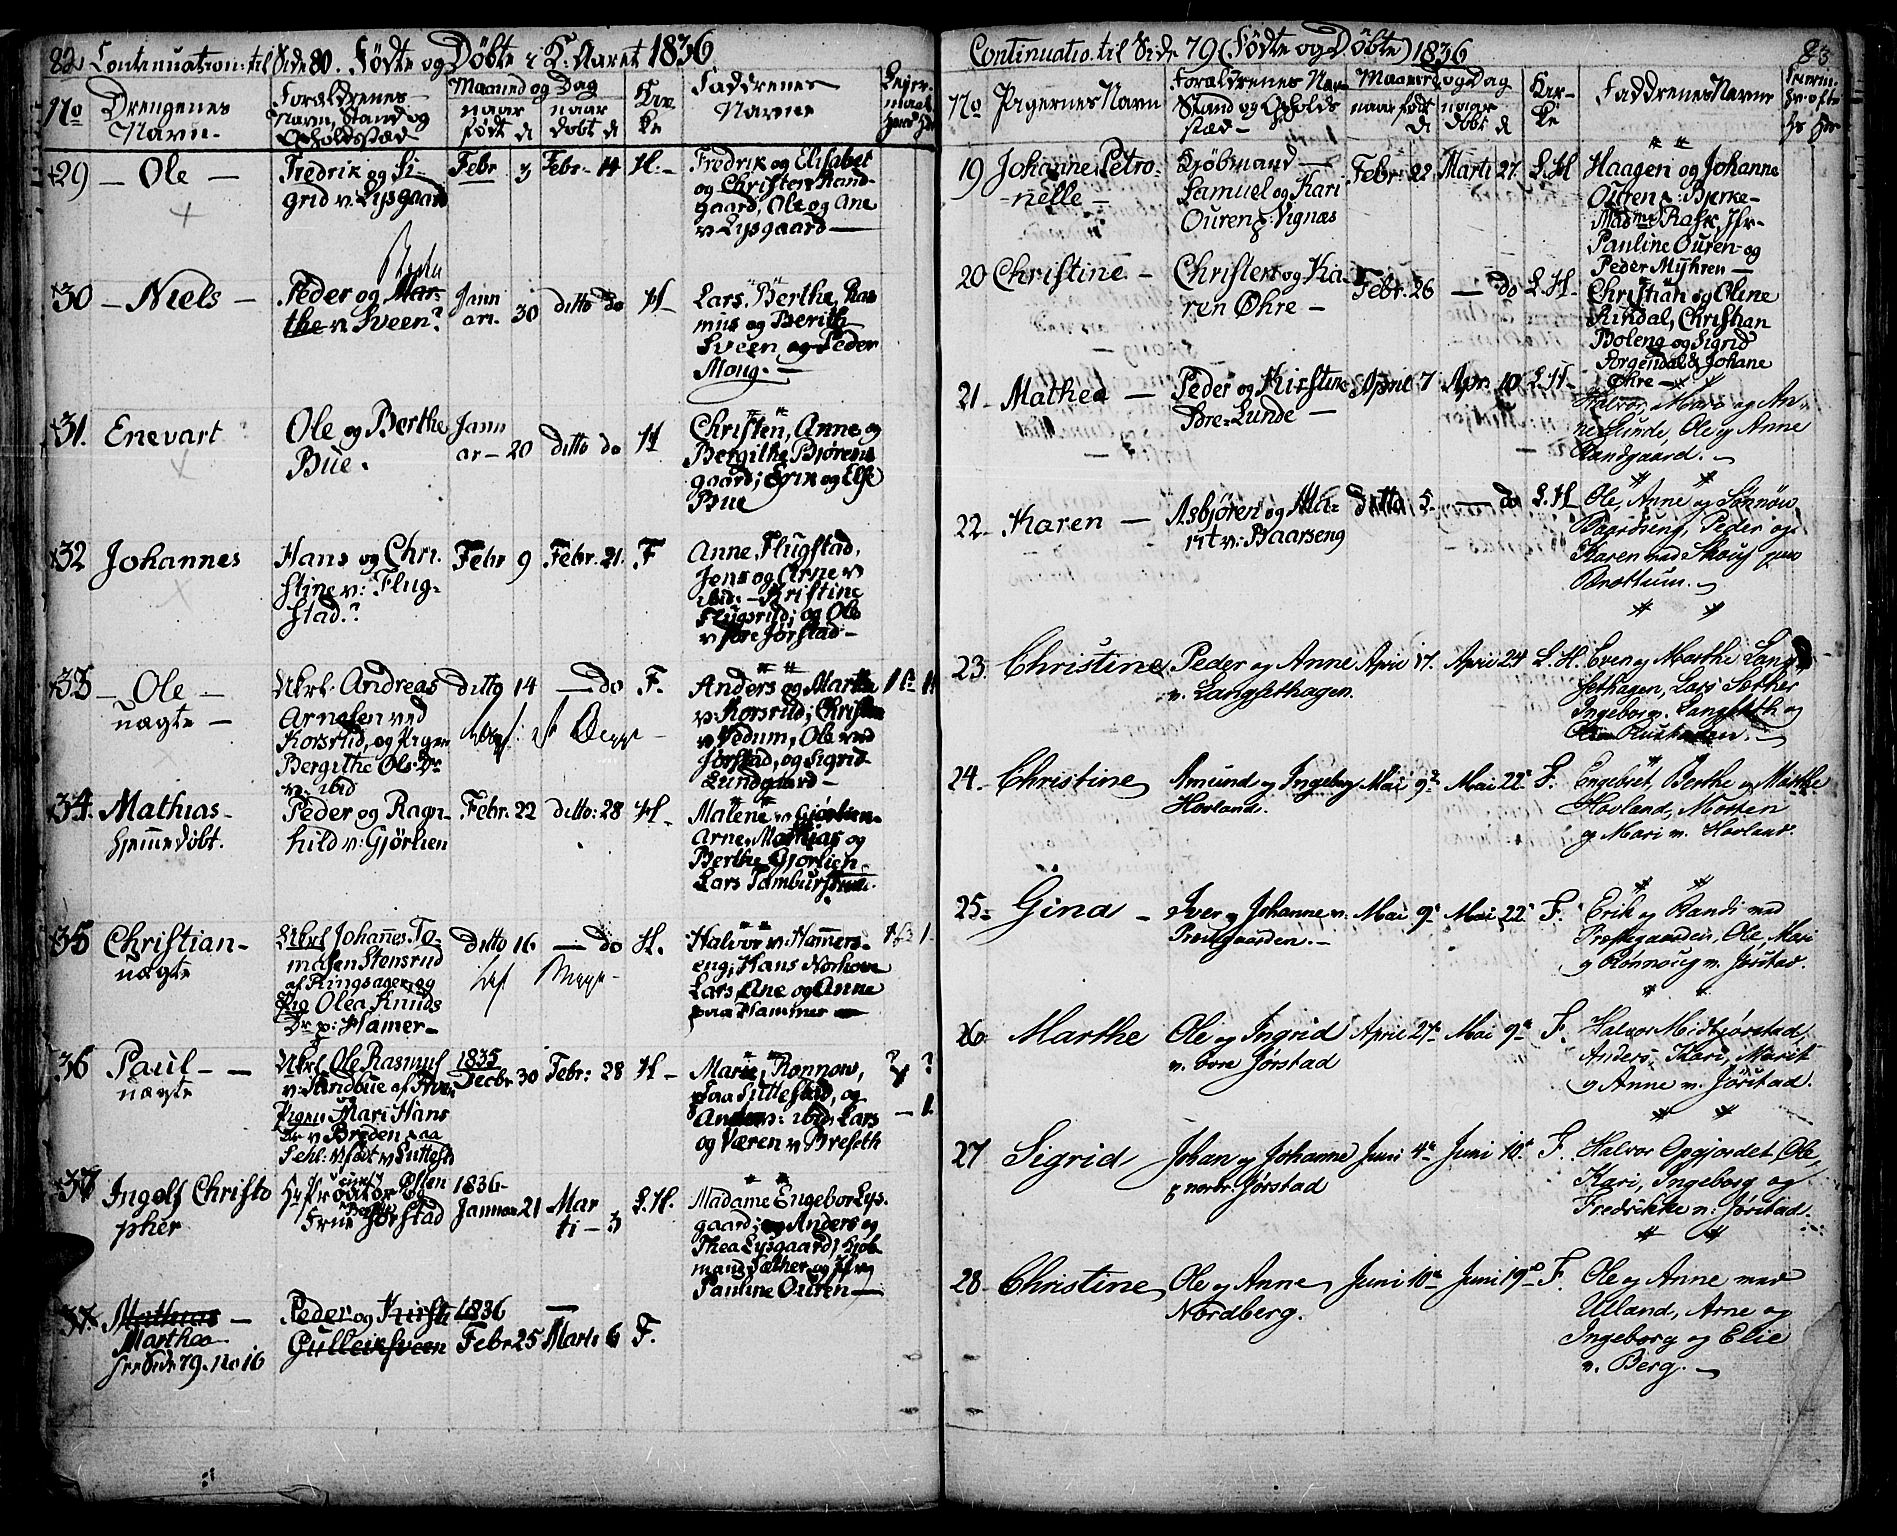 82 Continuation: til Side 80. Fødte og Døbte i K: Aaret 1836
No
Drengenes
Navn.
Foraldrenes
Navn, Stand og
Opholdsstæd
Maaned og Dag
naar
født d
naar
døbt d
Kir
ke
Faddrenes
Navne
29 — Ole —
Fredrik og Si-
grid v. Lysgaard
Febr 3 Febr. 14 H.
Fredrik og Elisabet
og Christen Rand-
gaard, Ole og Ane
v Lysgaard
30 — Niels —
Peder og Mar-
the v. Sveen?
Janu
ari. 30 ditto do H
Lars, Berthe, Ras
mus og Berith
Sveen og Peder
Moug.
31. Enevart
Ole og Berthe
Bue.
Janu
ar — 20 ditto do H
Christen, Anne og
Bergithe Bjørens
gaard; Erik og Else
Bue
32 Johannes
Hans og Chri-
stine v: Flug-
stad?
Febr 9 Febr. 21. F
Anne, Flugstad,
Jens og Arne v
ibid. — Kristine
Flugsrud; og Ole
v Jørstad
33 — Ole —
uægte —
Ukrl. Andreas
Arnesen ved
Korsrud, og Pigen
Bergithe Ols: Dr
v. ibid
ditto 14 — do F.
Anders og Marthe
v: Korsrud; Christen
v Vedum, Ole ved
Jørstad, og Sigrid
Lundgaard
34. Mathias
hjemmedøbt.
Peder og Ragn-
hild v: Gjørlien
Febr. 22 ditto: 28 H
Malene v Gjørlien
Arne, Mathias og
Berthe Gjørlien
Lars Tambur
35 Christian
uægte
Ukrl Johannes To-
masen Stensrud
af Ringsager, og
Pig Olea Knuds
Dr p: Hamer
ditto 16 — do H.
Halvor v: Hammers-
eng, Hans Norhove
Lars, Ane og Anne
paa Hammer
36 Paul — —
uægte
Ukrl Ole Rasmus
Pigen Mari Hans
Dr v Breden
1835
Decbr 30 Febr: 28 H
Marie, Rønnow,
paa Suttestad, og
Anders v: ibid, Lars
og Væren v Breseth
? ?
37 Ingolf Christo
pher
Jørstad
1836
Januar 21 Mar
ti — 3 L. H.
Madame Engebor Lys-
gaard; og Anders og
Thea Lysgaard, Kjøb
mand Sæther og Jfr
Pauline Ouren
37. Mathias —
Marthea
see Side 79. No 16
Peder og Kirsti
Gulleiksveen
1836
Febr 25 Marti 6 F.
Continuatio. til Side 79 (Fødte og Døbte) 1836 83
No
Pigernes Navn
Foraldrenes Nav
Stand og Opholds
stæd
Maaned og Dag
naar født d
naar
døbt d
Kir-
ke
Faddrenes Navne
19 Johanne Petro-
nelle —
Kjøbmand —
Samuel og Kari
Ouren p: Vignæs
Febr. 22 Marti 27. L. H
Haagen og Johanne
Ouren p: Bjerke
Madme Rafn, Jfr
Pauline Ouren og
Peder Myhren
20 Christine —
Christen og Ka-
ren Øhre —
Febr. 26 — do L. H
Christian og Oline
Rindal, Christian
Boleng og Sigrid
Jorgendal & Johane
Øhre
21. Mathea —
Peder og Kirstine
Øvre-Lunde —
April 7 Apr. 10 L. H
Halvor, Mari og An-
ne Lunde, Ole og Anne
Randgaard.
22. Karen —
Asbjøren og Ma-
rit v: Baarseng
ditto 5. — do L. H
Ole, Anne og Sønnow
Baardseng, Peder og
Karen ved Skoug paa
Brøttum.
23. Christine
Peder og Anne
v. Langsethagen.
April 17. April 24 L. H.
Even og Marthe Lang-
sethagen, Lars Sæther
Ingebor v. Langseth og
24. Christine
Amund og Ingeborg
Hovland.
Mai 9de Mai 22 F.
Engebret, Berthe og Marthe
Hovland, Morten
og Mari v. Hovland.
25. Gina —
Iver og Johanne v.
Præstgaarden.
Mai 9de Mai 22 F.
Erik og Randi ved
Præstegaarden, Ole, Mari
og Rønnoug v. Jørstad.
26. Marthe
Ole og Ingrid
v. øvre Jørstad
April 27de Mai 9de F.
Halvor Midtjørstad,
Anders, Kari, Marit
og Anne v. Jørstad.
27 Sigrid
Johan og Johanne
p nordr. Jørstad
Juni 4de Juni 10de F.
Halvor Opgjordet, Ole,
Kari, Ingeborg og
Fredrikke v: Jørstad.
28. Christine
Ole og Anne
Nordberg.
Juni 10de Juni 19de F.
Ole og Anne ved
Ulland, Arne og
Ingeborg og Elie
v. Berg.